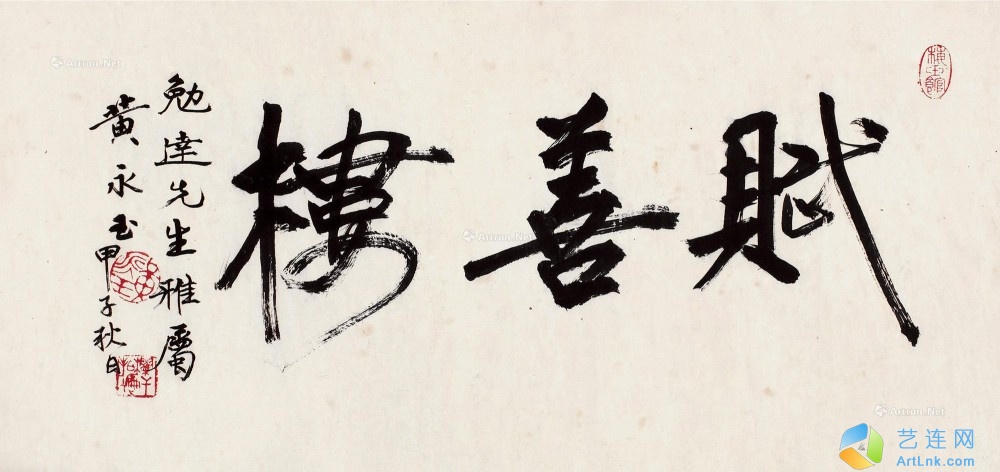 賦善樓
勉達先生雅屬
黄永玉甲子秋日
Artron.Net
Artron.Net
Artron.Net
艺连网
ArtLnk.com